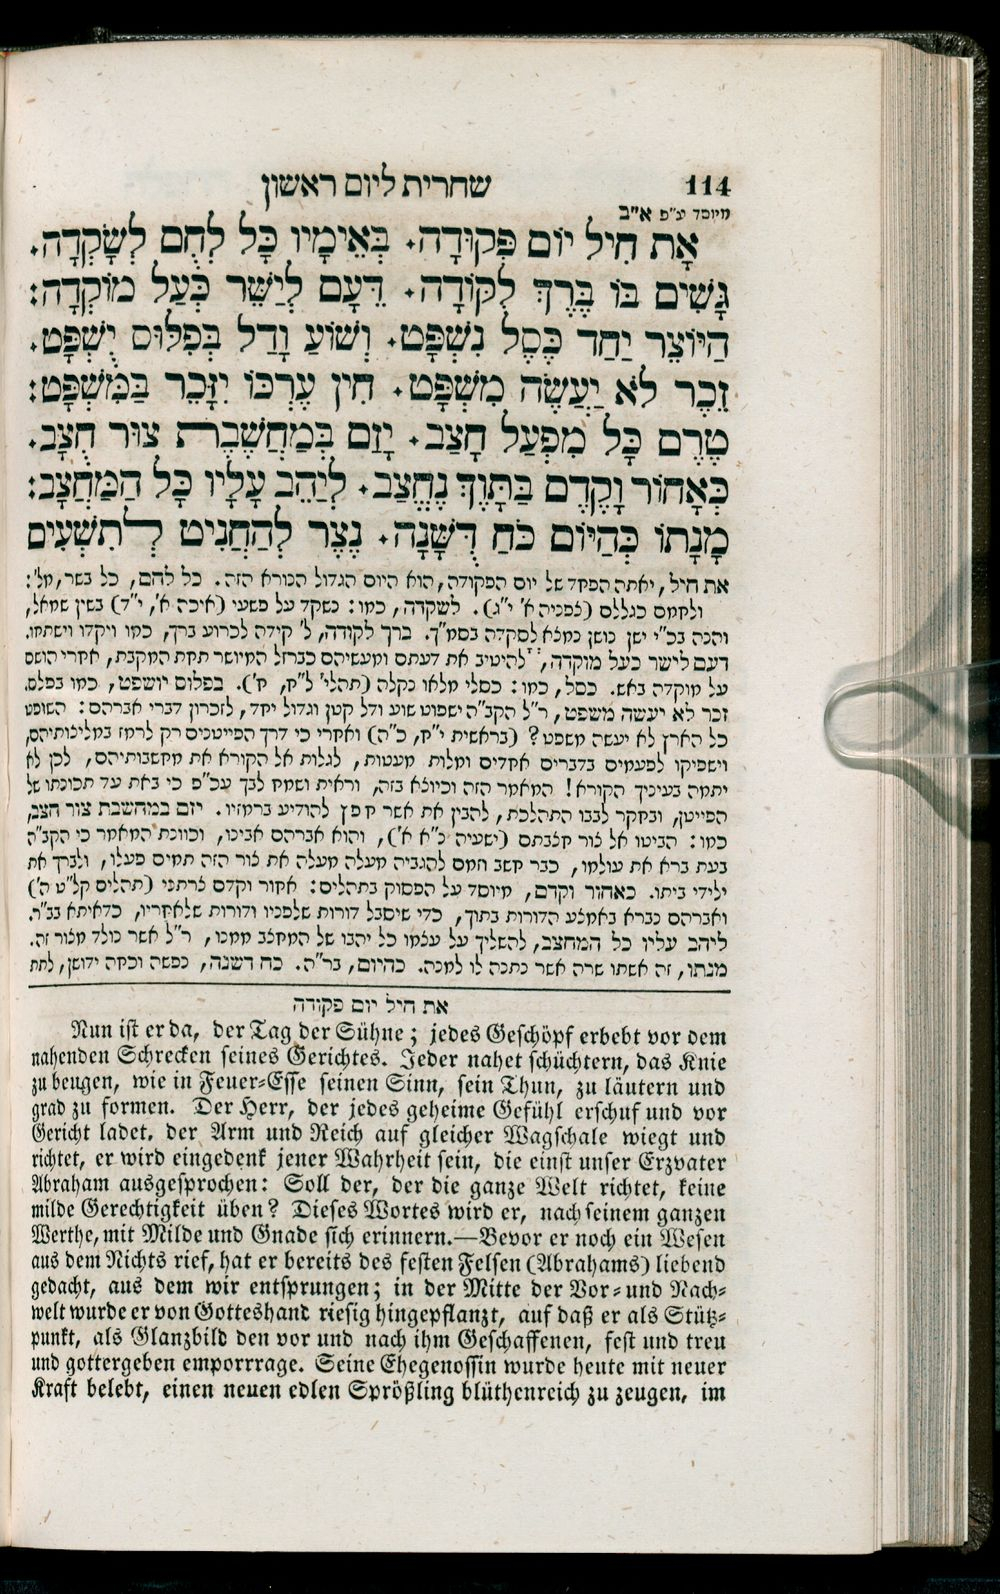 114 שחרית ליום ראשון
מיוסד ע״פ א״ב
אָת חִיל יוֹם פְּקוּדָה. בְּאֵימָיו כָּל לְחֻם לְשָׁקְדָה.
גָּשִׁים בּוֹ בֶּרֶךְ לְקוֹדָה. דֵּעָם לְיַשֵּׁר כְּעַל מוֹקְדָה:
הַיּוֹצֵר יַחַד כֶּסֶל נִשְׁפָּט. וְשׁוֹעַ וָדַל בְּפִלּוּס יִשְׁפָּט.
זֵכֶר לֹא יַעֲשֶׂה מִשְׁפָּט. חִין עֶרְכּוֹ יִזָּכֵר בַּמִּשְׁפָּט:
טֶרֶם כָּל מִפְעַל חָצַב. יָזַם בְּמַחֲשֶׁבֶת צוּר חֻצָּב.
כְּאָחוֹר וָקֶדֶם בַּתָּוֶךְ נֶחֱצַב. לְיַהֵב עָלָיו כָּל הַמַּחֲצָב:
מָנָתוֹ כְּהַיּוֹם כֹּחַ דֻּשָּׁנָה. נֵצֶר לְהַחֲנִיט לְתִשְׁעִים
את חיל, יאתה הפחד של יום הפקודה, הוא היום הגדול הנורא הזה. כל לחם, כל בשר, מל׳:
ולחמם כגללים (צפניה א׳ י״ג). לשקדה, כמו: נשקד על פשעי (איכה א׳, י״ד) בשין שמאל,
והנה בכ״י ישן נושן נמצא לסקדה בסמ״ך. ברך לקודה, ל׳ קידה לכרוע ברך, כמו ויקדו וישתחוו.
דעם לישר כעל מוקדה, להיטיב את דעתם ומעשיהם כברזל המיושר תחת המקבת, אחרי הושם
על מוקדה באש. כסל, כמו: כסלי מלאו נקלה (תהלי׳ ל״ח, ח׳). בפלוס יושפט, כמו בפלס.
זכר לא יעשה משפט, ר״ל הקב״ה ישפוט שוע ודל קטן וגדול יחד, לזכרון דברי אברהם: השופט
כל הארץ לא יעשה משפט? (בראשית י״ח, כ״ה) ואחרי כי דרך הפייטנים רק לרמז במליצותיהם,
ויספיקו לפעמים בדברים אחדים ומלות מעטות, לגלות אל הקורא את מחשבותיהם, לכן לא
יתמה בעיניך הקורא! המאמר הזה וכיוצא בזה, וראית ושמת לבך עכ״פ כי באת עד תכונתו של
הפייטן, ובחקר לבבו התהלכת, להבין את אשר חפץ להודיע ברמזיו. יזם במחשבת צור חצב,
כמו: הביטו אל צור חצבתם (ישעיה נ״א א׳), והוא אברהם אבינו, וכוונת המאמר כי הקב״ה
בעת ברא את עולמו, כבר חשב וזמם להגביה מעלה מעלה את צור הזה תמים פעלו, ולברך את
ילידי ביתו. כאחור וקדם, מיוסד על הפסוק בתהלים: אחור וקדם צרתני (תהלים קל״ט ה׳)
ואברהם נברא באמצע הדורות בתוך, כדי שיסבל דורות שלפניו ודורות שלאחריו, כדאיתא בב״ר.
ליהב עליו כל המחצב, להשליך על עצמו כל יהבו של המחצב ממנו, ר״ל אשר נולד מצור זה.
מנתו, זה אשתו שרה אשר נתנה לו למנה. כהיום, בר״ה. כח דשנה, נפשה וכחה ידושן, לתת
את חיל יום פקודה
Nun ist er da, der Tag der Sühne; jedes Geschöpf erbebt vor dem
nahenden Schrecken seines Gerichtes. Jeder nahet schüchtern, das Knie
zu beugen, wie in Feuer-Esse seinen Sinn, sein Thun, zu läutern und
grad zu formen. Der Herr, der jedes geheime Gefühl erschuf und vor
Gericht ladet, der Arm und Reich auf gleicher Wagschale wiegt und
richtet, er wird eingedenk jener Wahrheit sein, die einst unser Erzvater
Abraham ausgesprochen: Soll der, der die ganze Welt richtet, keine
milde Gerechtigkeit üben? Dieses Wortes wird er, nach seinem ganzen
Werthe, mit Milde und Gnade sich erinnern.—Bevor er noch ein Wesen
aus dem Nichts rief, hat er bereits des festen Felsen (Abrahams) liebend
gedacht, aus dem wir entsprungen; in der Mitte der Vor- und Nach-
welt wurde er von Gotteshand riesig hingepflanzt, auf daß er als Stütz-
punkt, als Glanzbild den vor und nach ihm Geschaffenen, fest und treu
und gottergeben emporrrage. Seine Ehegenossin wurde heute mit neuer
Kraft belebt, einen neuen edlen Sprößling blüthenreich zu zeugen, im